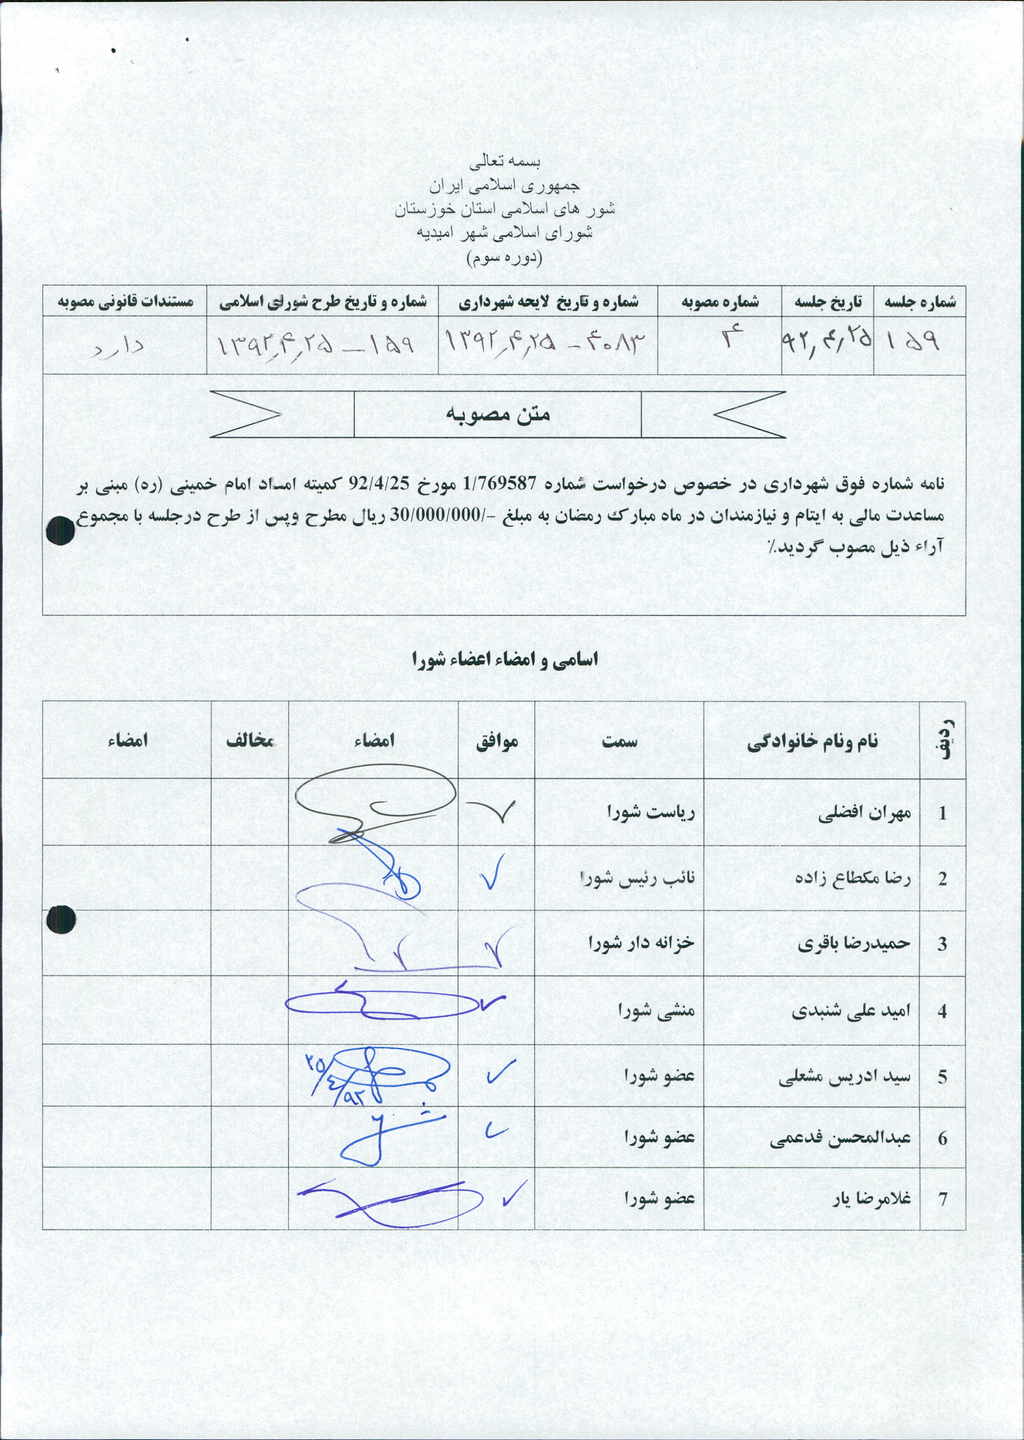 بسمه تعالی
جمهوری اسلامی ایران
شور های اسلامی استان خوزستان
شورای اسلامی شهر امیدیه
(دوره سوم)
شماره جلسه تاریخ جلسه شماره مصوبه شماره و تاریخ لایحه شهرداری شماره و تاریخ طرح شورای اسلامی مستندات قانونی مصوبه
۱۵۹ ۹۲,۴,۲۵ ۴ ۴۰۸۳ - ۱۳۹۲,۴,۲۵ ۱۵۹ - ۱۳۹۲,۴,۲۵ دارد
متن مصوبه
نامه شماره فوق شهرداری در خصوص درخواست شماره 1/769587 مورخ 92/4/25 کمیته امداد امام خمینی (ره) مبنی بر
مساعدت مالی به ایتام و نیازمندان در ماه مبارک رمضان به مبلغ -/30/000/000 ریال مطرح وپس از طرح درجلسه با مجموع
آراء ذیل مصوب گردید.٪
اسامی و امضاء اعضاء شورا
ردیف نام ونام خانوادگی سمت موافق امضاء مخالف امضاء
1 مهران افضلی ریاست شورا
2 رضا مکطاع زاده نائب رئیس شورا
3 حمیدرضا باقری خزانه دار شورا
4 امید علی شنبدی منشی شورا
5 سید ادریس مشعلی عضو شورا ۲۵/۴/۹۲
6 عبدالمحسن فدعمی عضو شورا
7 غلامرضا یار عضو شورا